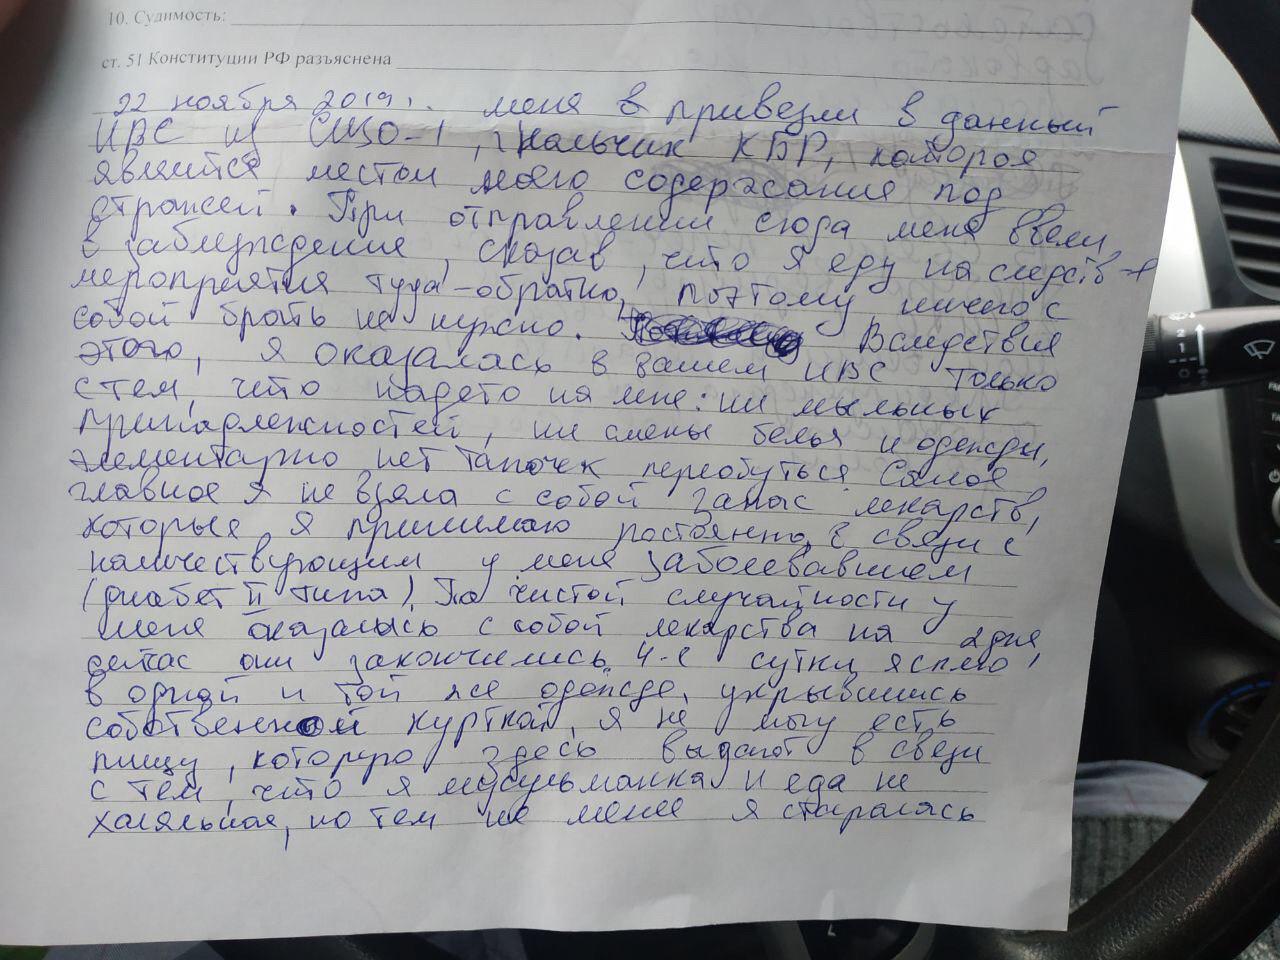 10. Судимость:
ст. 51 Конституции РФ разъяснена
22 ноября 2019г. меня в привезли в данный
ИВС из СИЗО-1, г. Нальчик КБР, которое
является местом моего содержания под
стражей. При отправлении сюда меня ввели
в заблуждение, сказав, что я еду на следств-е
мероприятия туда-обратно, поэтому ничего с
собой брать не нужно. Вследствия
этого, я оказалась в вашем ИВС только
с тем, что надето на мне: ни мыльных
принадлежностей, ни смены белья и одежды,
элементарно нет тапочек переобуться. Самое
главное я не взяла с собой запас лекарств,
которые я принимаю постоянно, в связи с
наличествующим у меня заболеванием
(диабет II типа). По чистой случайности у
меня оказалось с собой лекарства на 2 дня,
сейчас они закончились. 4-е сутки я сплю
в одной и той же одежде, укрывшись
собственной курткой, я не могу есть
пищу, которую здесь выдают в связи
с тем, что я мусульманка и еда не
халяльная, но тем не менее я старалась